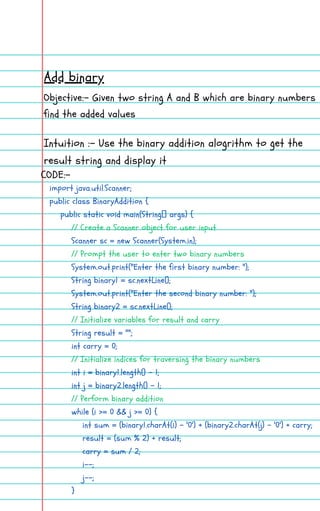 Add binary
Objective:- Given two string A and B which are binary numbers
find the added values
Intuition :- Use the binary addition alogrithm to get the
result string and display it
CODE:-
import java.util.Scanner;
public class BinaryAddition {
public static void main(String[] args) {
// Create a Scanner object for user input
Scanner sc = new Scanner(System.in);
// Prompt the user to enter two binary numbers
System.out.print("Enter the first binary number: ");
String binary1 = sc.nextLine();
System.out.print("Enter the second binary number: ");
String binary2 = sc.nextLine();
// Initialize variables for result and carry
String result = "";
int carry = 0;
// Initialize indices for traversing the binary numbers
int i = binary1.length() - 1;
int j = binary2.length() - 1;
// Perform binary addition
while (i >= 0 && j >= 0) {
int sum = (binary1.charAt(i) - '0') + (binary2.charAt(j) - '0') + carry;
result = (sum % 2) + result;
carry = sum / 2;
i--;
j--;
}